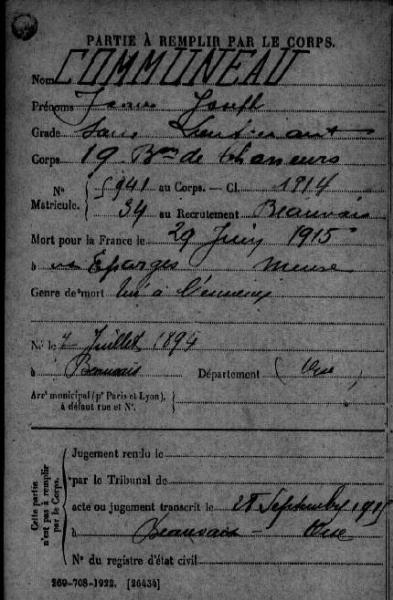 PARTIE À REMPLIR PAR LE CORPS.
Nom COMMUNEAU
Prénoms Joseph
Grade Sous Lieutenant
Corps 19 Bon de Chasseurs
N° Matricule. { 5941 au Corps. — Cl. 1914
34 au Recrutement Beauvais
Mort pour la France le 29 Juin 1915
à Eparges Meuse
Genre de mort tué à l'ennemi
Né le 7 Juillet 1894
à Beauvais Département Oise
Arrt municipal (pr Paris et Lyon), à défaut rue et N°.
Cette partie n'est pas à remplir par le Corps.
Jugement rendu le
par le Tribunal de
acte ou jugement transcrit le 28 Septembre 1915
à Beauvais - Oise
N° du registre d'état civil
269-708-1922. [26434]